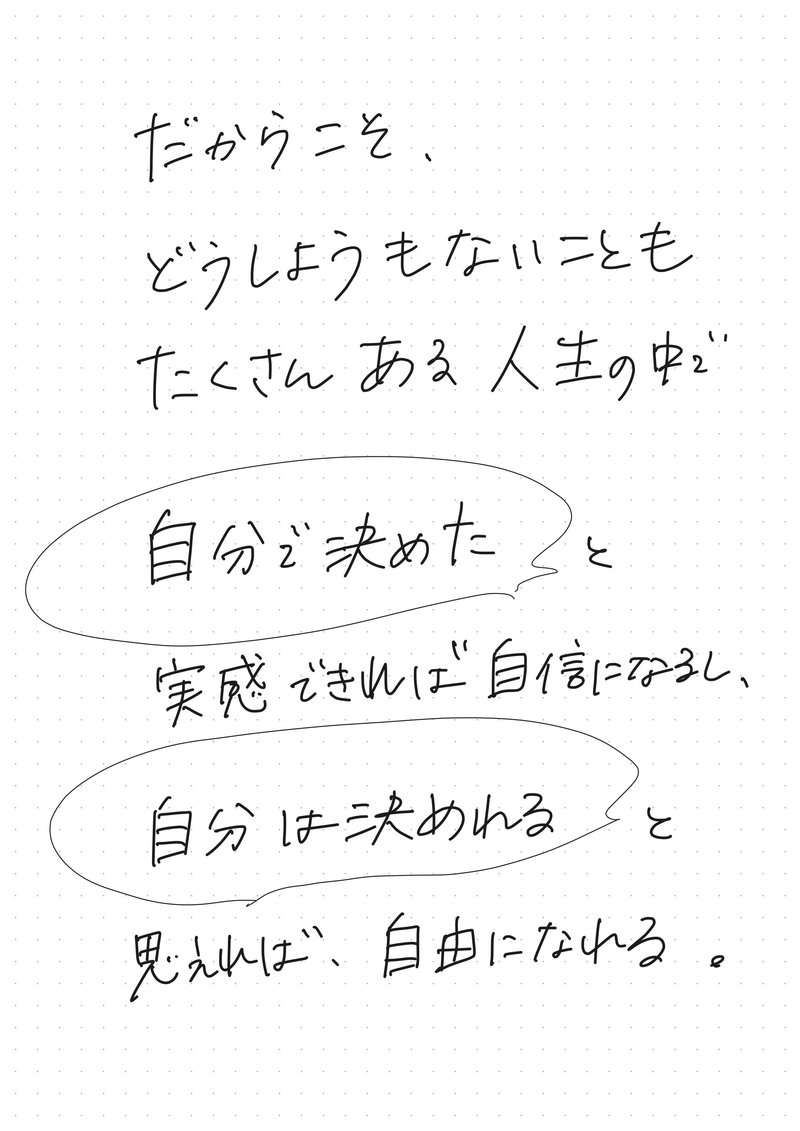 だからこそ、
どうしようもないことも
たくさんある人生の中で
自分で決めた と
実感できれば自信になるし、
自分は決めれる と
思えれば、自由になれる。